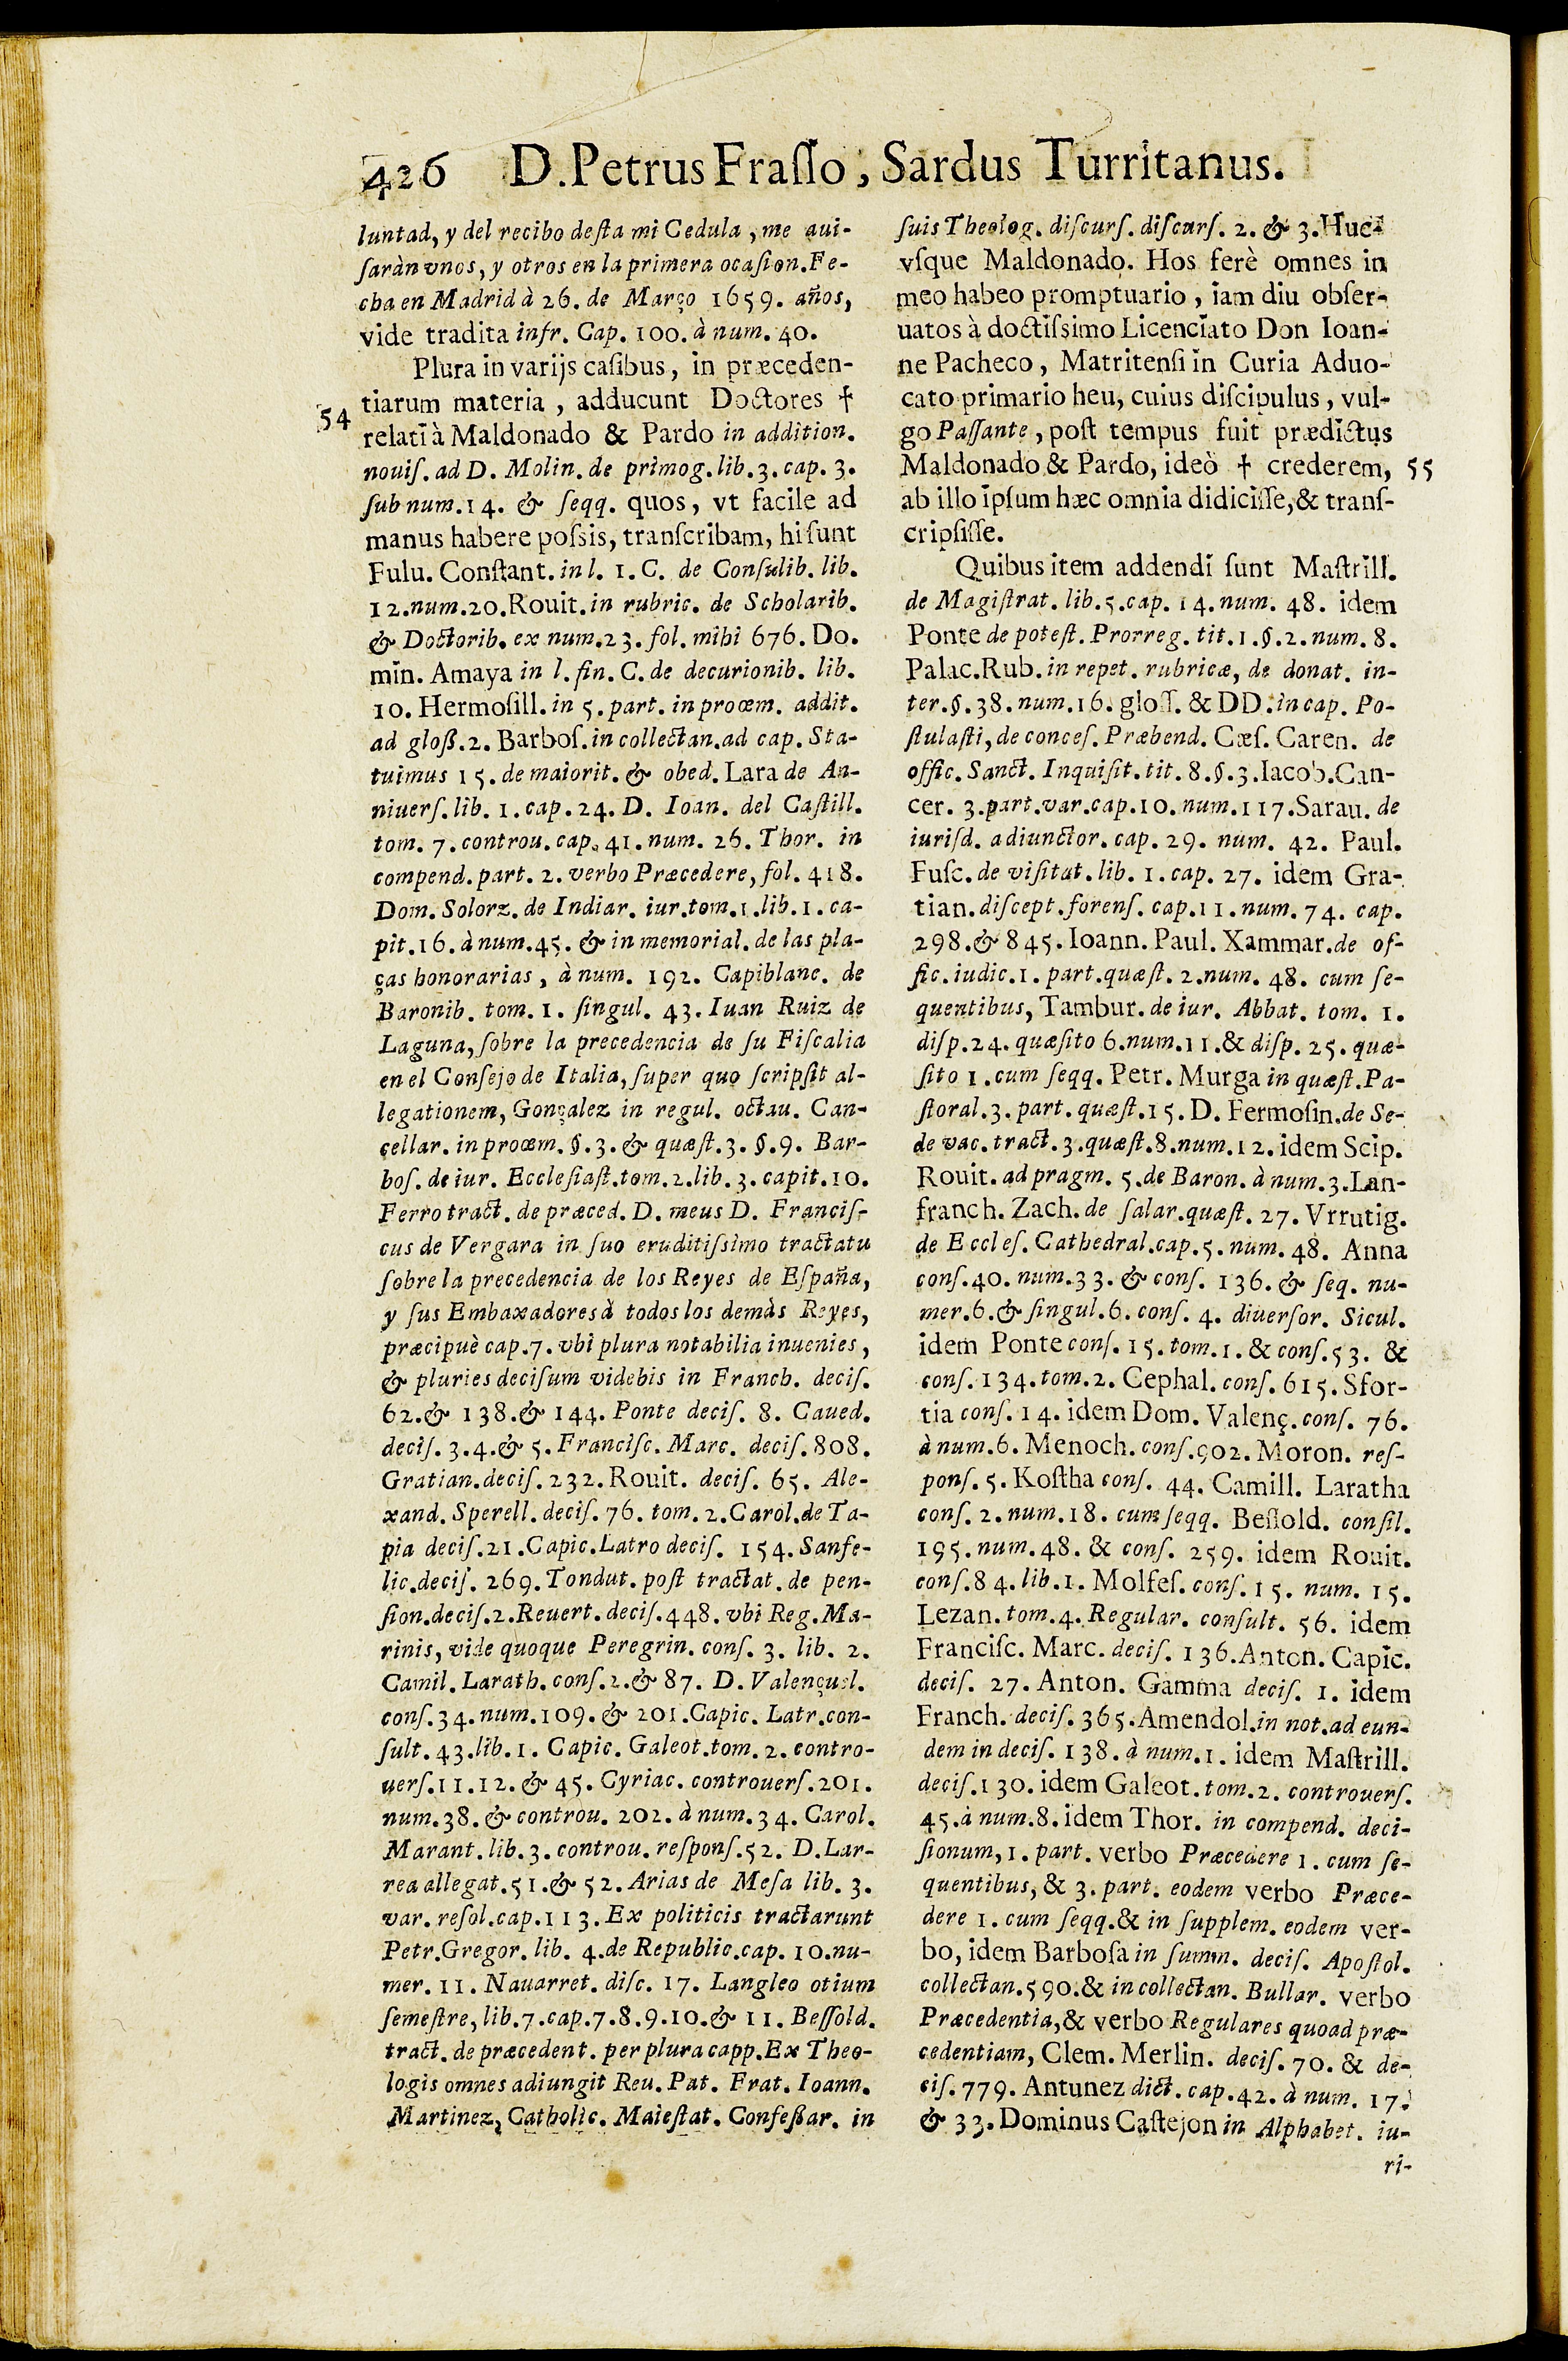 426 D. Petrus Frasso, Sardus Turritanus.
luntad, y del recibo desta mi Cedula, me aui-
saràn vnos, y otros en la primera ocasion. Fe-
cha en Madrid à 26. de Março 1659. años,
vide tradita infr. Cap. 100. à num. 40.
Plura in varijs casibus, in præceden-
54 tiarum materia, adducunt Doctores †
relati à Maldonado & Pardo in addition.
nouis. ad D. Molin. de primog. lib. 3. cap. 3.
sub num. 14. & seqq. quos, vt facile ad
manus habere possis, transcribam, hi sunt
Fulu. Constant. in l. 1. C. de Consulib. lib.
12. num. 20. Rouit. in rubric. de Scholarib.
& Doctorib. ex num. 23. fol. mihi 676. Do.
min. Amaya in l. fin. C. de decurionib. lib.
10. Hermosill. in 5. part. in proœm. addit.
ad gloß. 2. Barbos. in collectan. ad cap. Sta-
tuimus 15. de maiorit. & obed. Lara de An-
nivers. lib. 1. cap. 24. D. Ioan. del Castill.
tom. 7. controu. cap. 41. num. 26. Thor. in
compend. part. 2. verbo Præcedere, fol. 418.
Dom. Solorz. de Indiar. iur. tom. 1. lib. 1. ca-
pit. 16. à num. 45. & in memorial. de las pla-
ças honorarias, à num. 192. Capiblanc. de
Baronib. tom. 1. singul. 43. Iuan Ruiz de
Laguna, sobre la precedencia de su Fiscalia
en el Consejo de Italia, super quo scripsit al-
legationem, Gonçalez in regul. octau. Can-
cellar. in proœm. §. 3. & quæst. 3. §. 9. Bar-
bos. de iur. Ecclesiast. tom. 2. lib. 3. capit. 10.
Ferro tract. de præced. D. meus D. Francis-
cus de Vergara in suo eruditissimo tractatu
sobre la precedencia de los Reyes de España,
y sus Embaxadores à todos los demàs Reyes,
præcipuè cap. 7. vbi plura notabilia inuenies,
& pluries decisum videbis in Franch. decis.
62. & 138. & 144. Ponte decis. 8. Caued.
decis. 3. 4. & 5. Francisc. Marc. decis. 808.
Gratian. decis. 232. Rouit. decis. 65. Ale-
xand. Sperell. decis. 76. tom. 2. Carol. de Ta-
pia decis. 21. Capic. Latro decis. 154. Sanfe-
lic. decis. 269. Tondut. post tractat. de pen-
sion. decis. 2. Reuert. decis. 448. vbi Reg. Ma-
rinis, vide quoque Peregrin. cons. 3. lib. 2.
Camil. Larath. cons. 2. & 87. D. Valençuel.
cons. 34. num. 109. & 201. Capic. Latr. con-
sult. 43. lib. 1. Capic. Galeot. tom. 2. contro-
uers. 11. 12. & 45. Cyriac. controuers. 201.
num. 38. & controu. 202. à num. 34. Carol.
Marant. lib. 3. controu. respons. 52. D. Lar-
rea allegat. 51. & 52. Arias de Mesa lib. 3.
var. resol. cap. 113. Ex politicis tractarunt
Petr. Gregor. lib. 4. de Republic. cap. 10. nu-
mer. 11. Nauarret. disc. 17. Langleo otium
semestre, lib. 7. cap. 7. 8. 9. 10. & 11. Bessold.
tract. de præcedent. per plura capp. Ex Theo-
logis omnes adiungit Reu. Pat. Frat. Ioann.
Martinez, Catholic. Maiestat. Confeßar. in
suis Theolog. discurs. discurs. 2. & 3. Huc-
vsque Maldonado. Hos ferè omnes in
meo habeo promptuario, iam diu obser-
uatos à doctissimo Licenciato Don Ioan-
ne Pacheco, Matritensi in Curia Aduo-
cato primario heu, cuius discipulus, vul-
go Passante, post tempus fuit prædictus
Maldonado & Pardo, ideò † crederem, 55
ab illo ipsum hæc omnia didicisse, & trans-
cripsisse.
Quibus item addendi sunt Mastrill.
de Magistrat. lib. 5. cap. 14. num. 48. idem
Ponte de potest. Prorreg. tit. 1. §. 2. num. 8.
Palac. Rub. in repet. rubricæ, de donat. in-
ter. §. 38. num. 16. gloss. & DD. in cap. Po-
stulasti, de conces. Præbend. Cæs. Caren. de
offic. Sanct. Inquisit. tit. 8. §. 3. Iacob. Can-
cer. 3. part. var. cap. 10. num. 117. Sarau. de
iurisd. adiunctor. cap. 29. num. 42. Paul.
Fusc. de visitat. lib. 1. cap. 27. idem Gra-
tian. discept. forens. cap. 11. num. 74. cap.
298. & 845. Ioann. Paul. Xammar. de of-
fic. iudic. 1. part. quæst. 2. num. 48. cum se-
quentibus, Tambur. de iur. Abbat. tom. 1.
disp. 24. quæsito 6. num. 11. & disp. 25. quæ-
sito 1. cum seqq. Petr. Murga in quæst. Pa-
storal. 3. part. quæst. 15. D. Fermosin. de Se-
de vac. tract. 3. quæst. 8. num. 12. idem Scip.
Rouit. ad pragm. 5. de Baron. à num. 3. Lan-
franch. Zach. de salar. quæst. 27. Vrrutig.
de Eccles. Cathedral. cap. 5. num. 48. Anna
cons. 40. num. 33. & cons. 136. & seq. nu-
mer. 6. & singul. 6. cons. 4. diuersor. Sicul.
idem Ponte cons. 15. tom. 1. & cons. 53. &
cons. 134. tom. 2. Cephal. cons. 615. Sfor-
tia cons. 14. idem Dom. Valenç. cons. 76.
à num. 6. Menoch. cons. 902. Moron. res-
pons. 5. Kostha cons. 44. Camill. Laratha
cons. 2. num. 18. cum seqq. Bessold. consil.
195. num. 48. & cons. 259. idem Rouit.
cons. 84. lib. 1. Molfes. cons. 15. num. 15.
Lezan. tom. 4. Regular. consult. 56. idem
Francisc. Marc. decis. 136. Anton. Capic.
decis. 27. Anton. Gamma decis. 1. idem
Franch. decis. 365. Amendol. in not. ad eun-
dem in decis. 138. à num. 1. idem Mastrill.
decis. 130. idem Galeot. tom. 2. controuers.
45. à num. 8. idem Thor. in compend. deci-
sionum, 1. part. verbo Præcedere 1. cum se-
quentibus, & 3. part. eodem verbo Præce-
dere 1. cum seqq. & in supplem. eodem ver-
bo, idem Barbosa in summ. decis. Apostol.
collectan. 590. & in collectan. Bullar. verbo
Præcedentia, & verbo Regulares quoad præ-
cedentiam, Clem. Merlin. decis. 70. & de-
cis. 779. Antunez dict. cap. 42. à num. 17.
& 33. Dominus Castejon in Alphabet. iu-
ri-